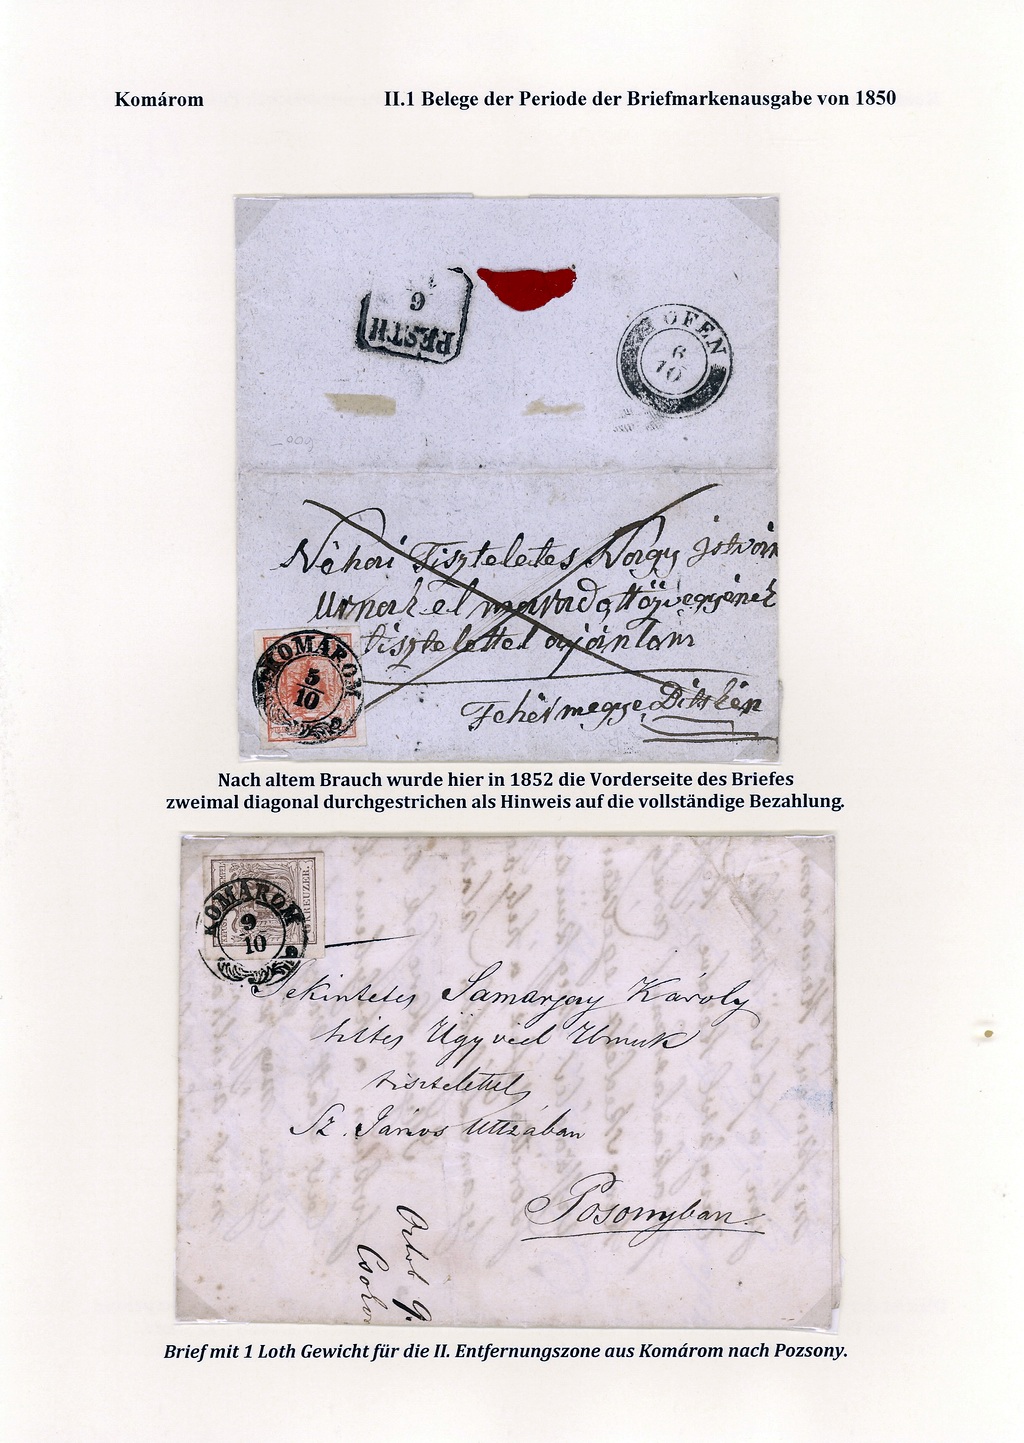 Komárom II.1 Belege der Periode der Briefmarkenausgabe von 1850
PESTH
6
OFEN
6
10
Néhai Tiszteletes Nagy István
Urnak el maradott özvegyének
tisztelettel ajánlam
Fehérmegye
KOMÁROM
5
10
Nach altem Brauch wurde hier in 1852 die Vorderseite des Briefes
zweimal diagonal durchgestrichen als Hinweis auf die vollständige Bezahlung.
KREUZER.
KOMÁROM
9
10
Tekintetes Samarjay Károly
hites Ügyvéd Urnak
tisztelettel
Sz. János Uttzában
Posonyban
9.
Brief mit 1 Loth Gewicht für die II. Entfernungszone aus Komárom nach Pozsony.